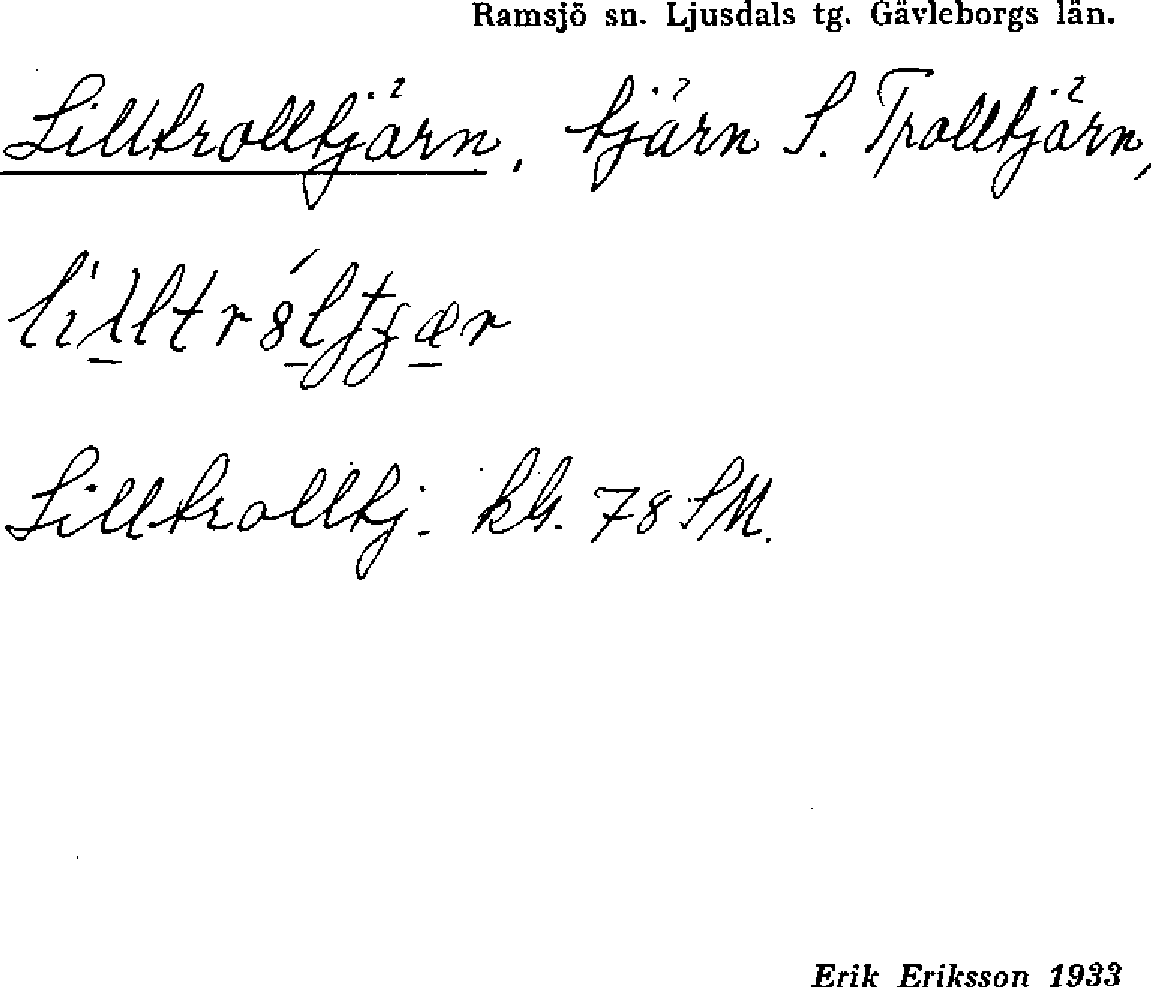 Ramsjö sn. Ljusdals tg. Gävleborgs län.
Lilltrolltjärn, tjärn S. Trolltjärn,
Lilltrolltj. kb. 78 SM.
Erik Eriksson 1933